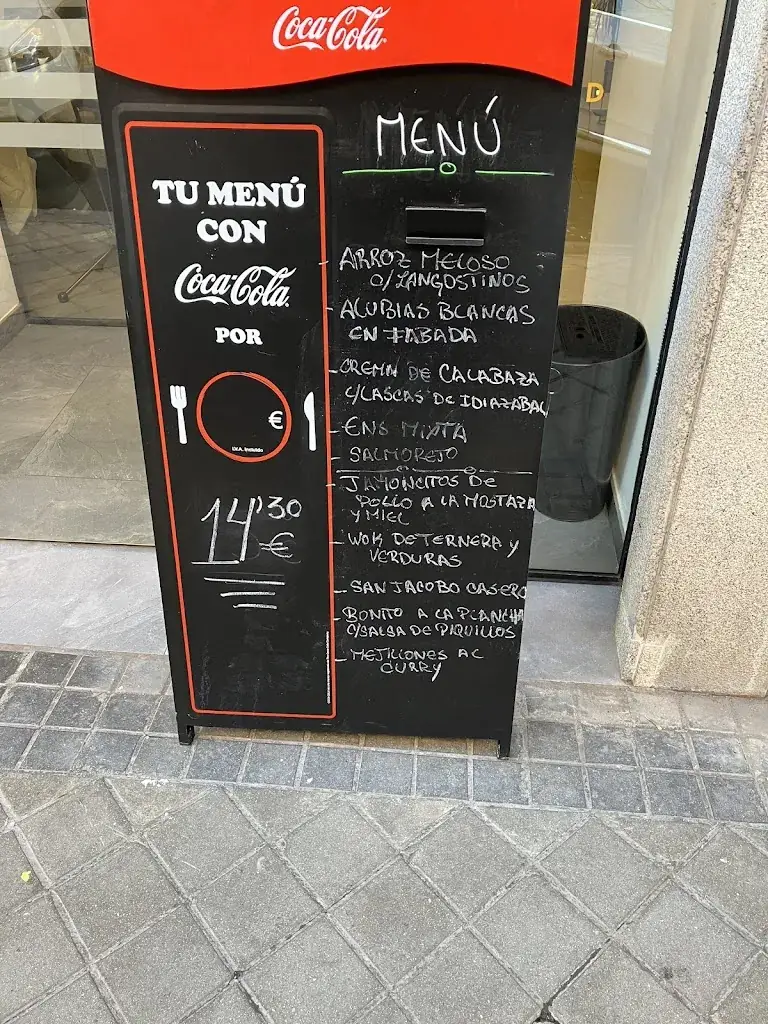 Coca-Cola
TU MENÚ
CON
Coca-Cola
POR
€
I.V.A. Incluido
14'30
€
MENÚ
- ARROZ MELOSO
C/LANGOSTINOS
- ALUBIAS BLANCAS
EN FABADA
- CREMA DE CALABAZA
C/LASCAS DE IDIAZABAL
- ENS MIXTA
- SALMOREJO
- JAMONCITOS DE
POLLO A LA MOSTAZA
Y MIEL
- WOK DE TERNERA Y
VERDURAS
- SAN JACOBO CASERO
- BONITO A LA PLANCHA
C/SALSA DE PIQUILLOS
- MEJILLONES AL
CURRY